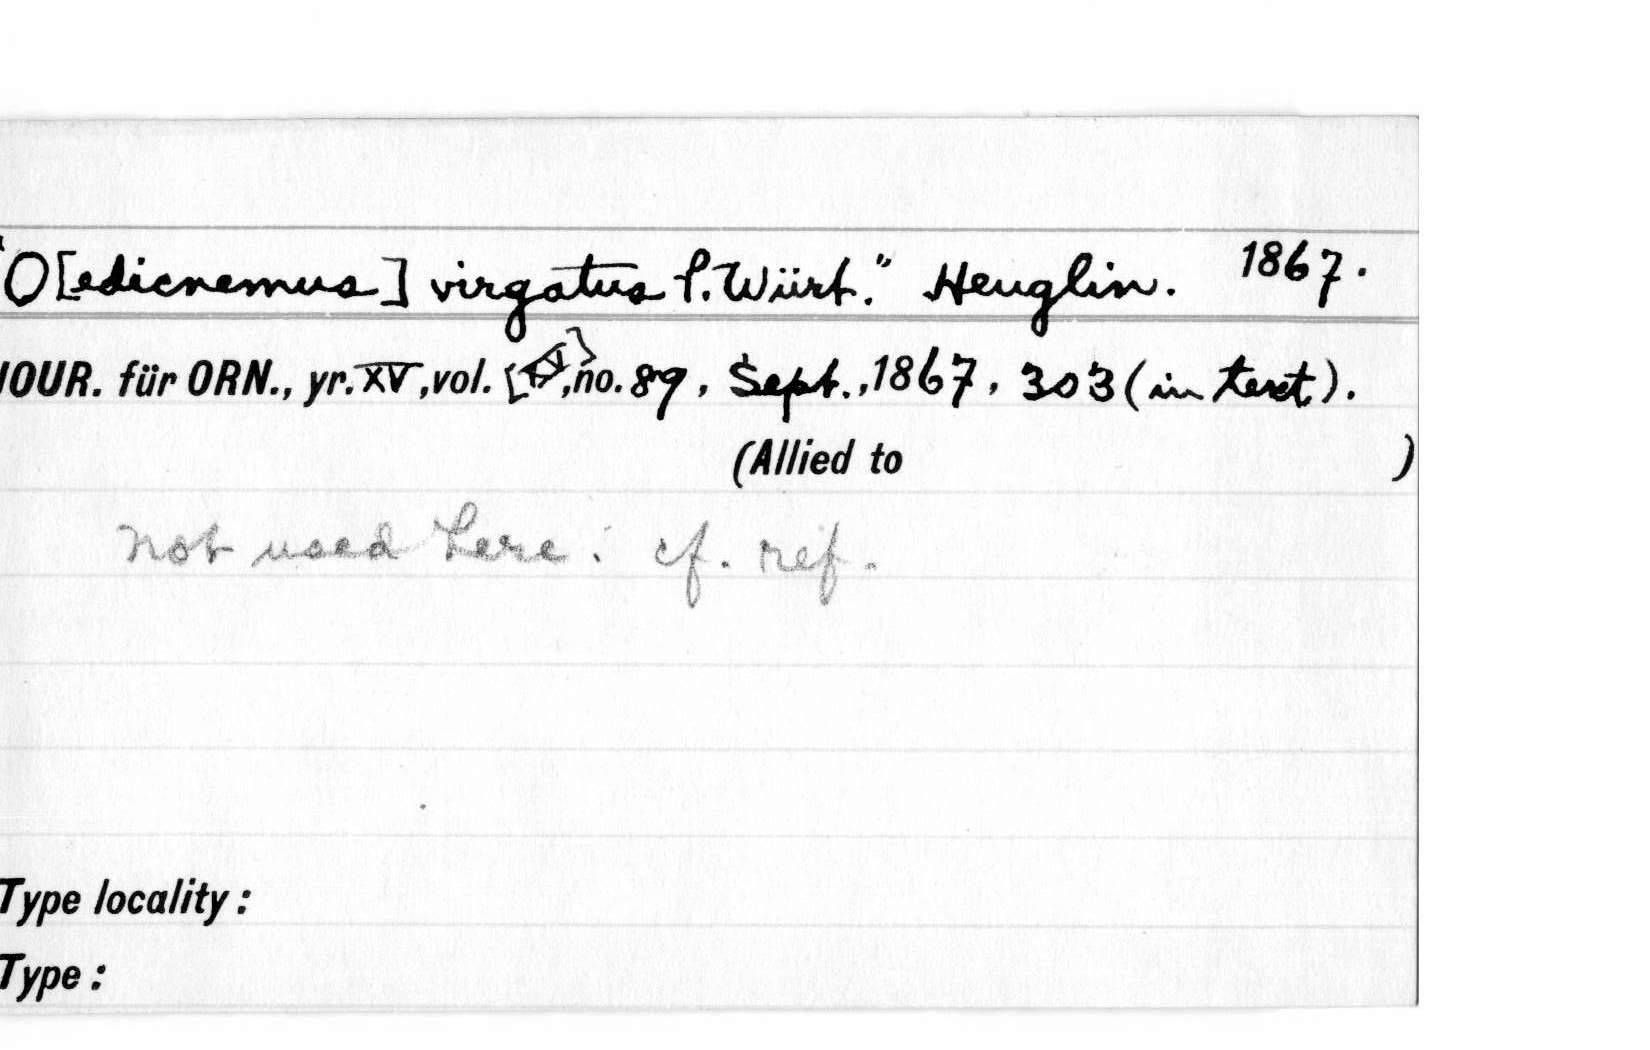 "O[edicnemus] virgatus P. Würt." Heuglin. 1867.
JOUR. für ORN., yr. XV, vol. [XV], no. 89, Sept., 1867, 303 (in text).
(Allied to )
Not used here: cf. ref.
Type locality:
Type: